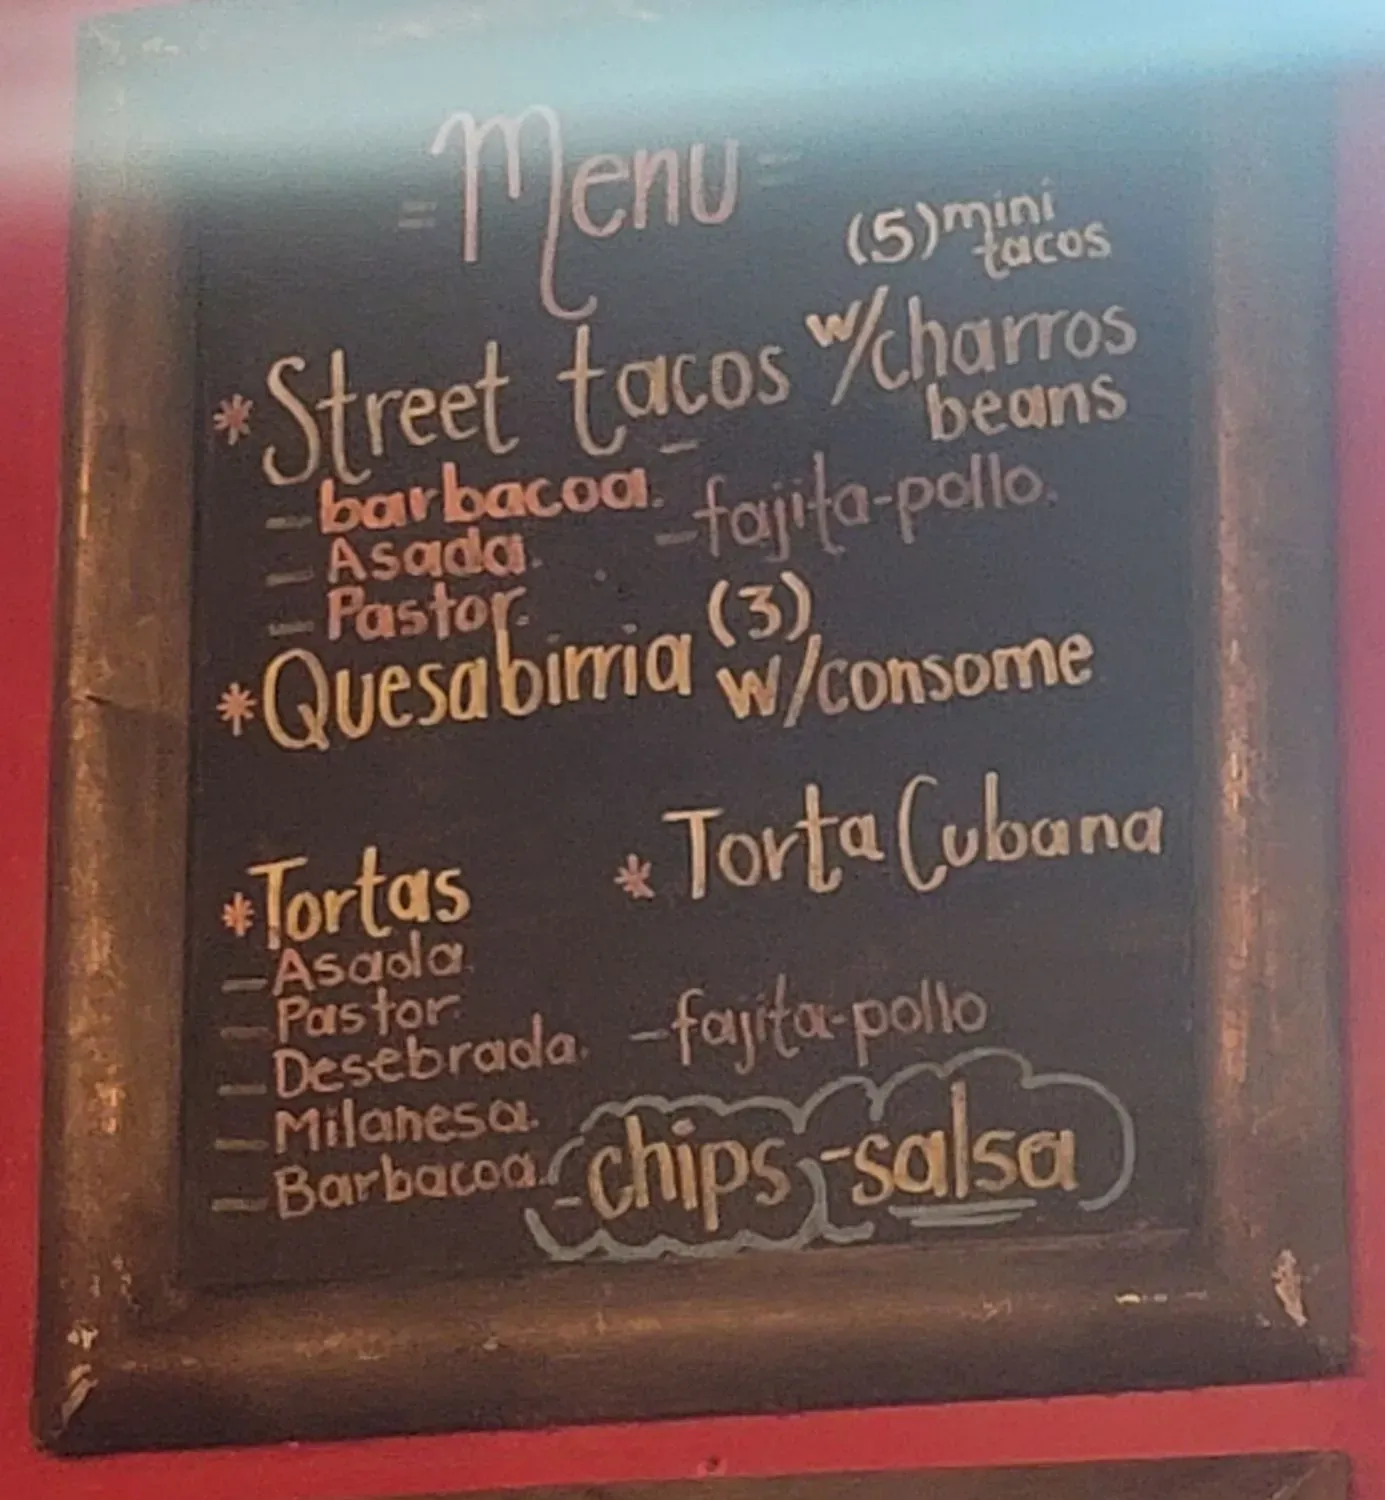 = Menu =
(5) mini
tacos
* Street tacos w/charros
beans
- barbacoa. - fajita-pollo.
- Asada.
- Pastor.
* Quesabirria (3)
w/consome
* Torta Cubana
* Tortas
- Asada
- Pastor
- Desebrada. - fajita-pollo
- Milanesa.
- Barbacoa.
- chips, -salsa